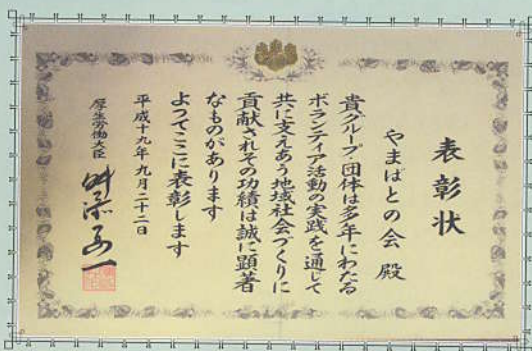 表彰状
やまばとの会 殿
貴グループ・団体は多年にわたる
ボランティア活動の実践を通して
共に支えあう地域社会づくりに
貢献されその功績は誠に顕著
なものがあります
よってここに表彰します
平成十九年九月二十二日
厚生労働大臣 舛添要一